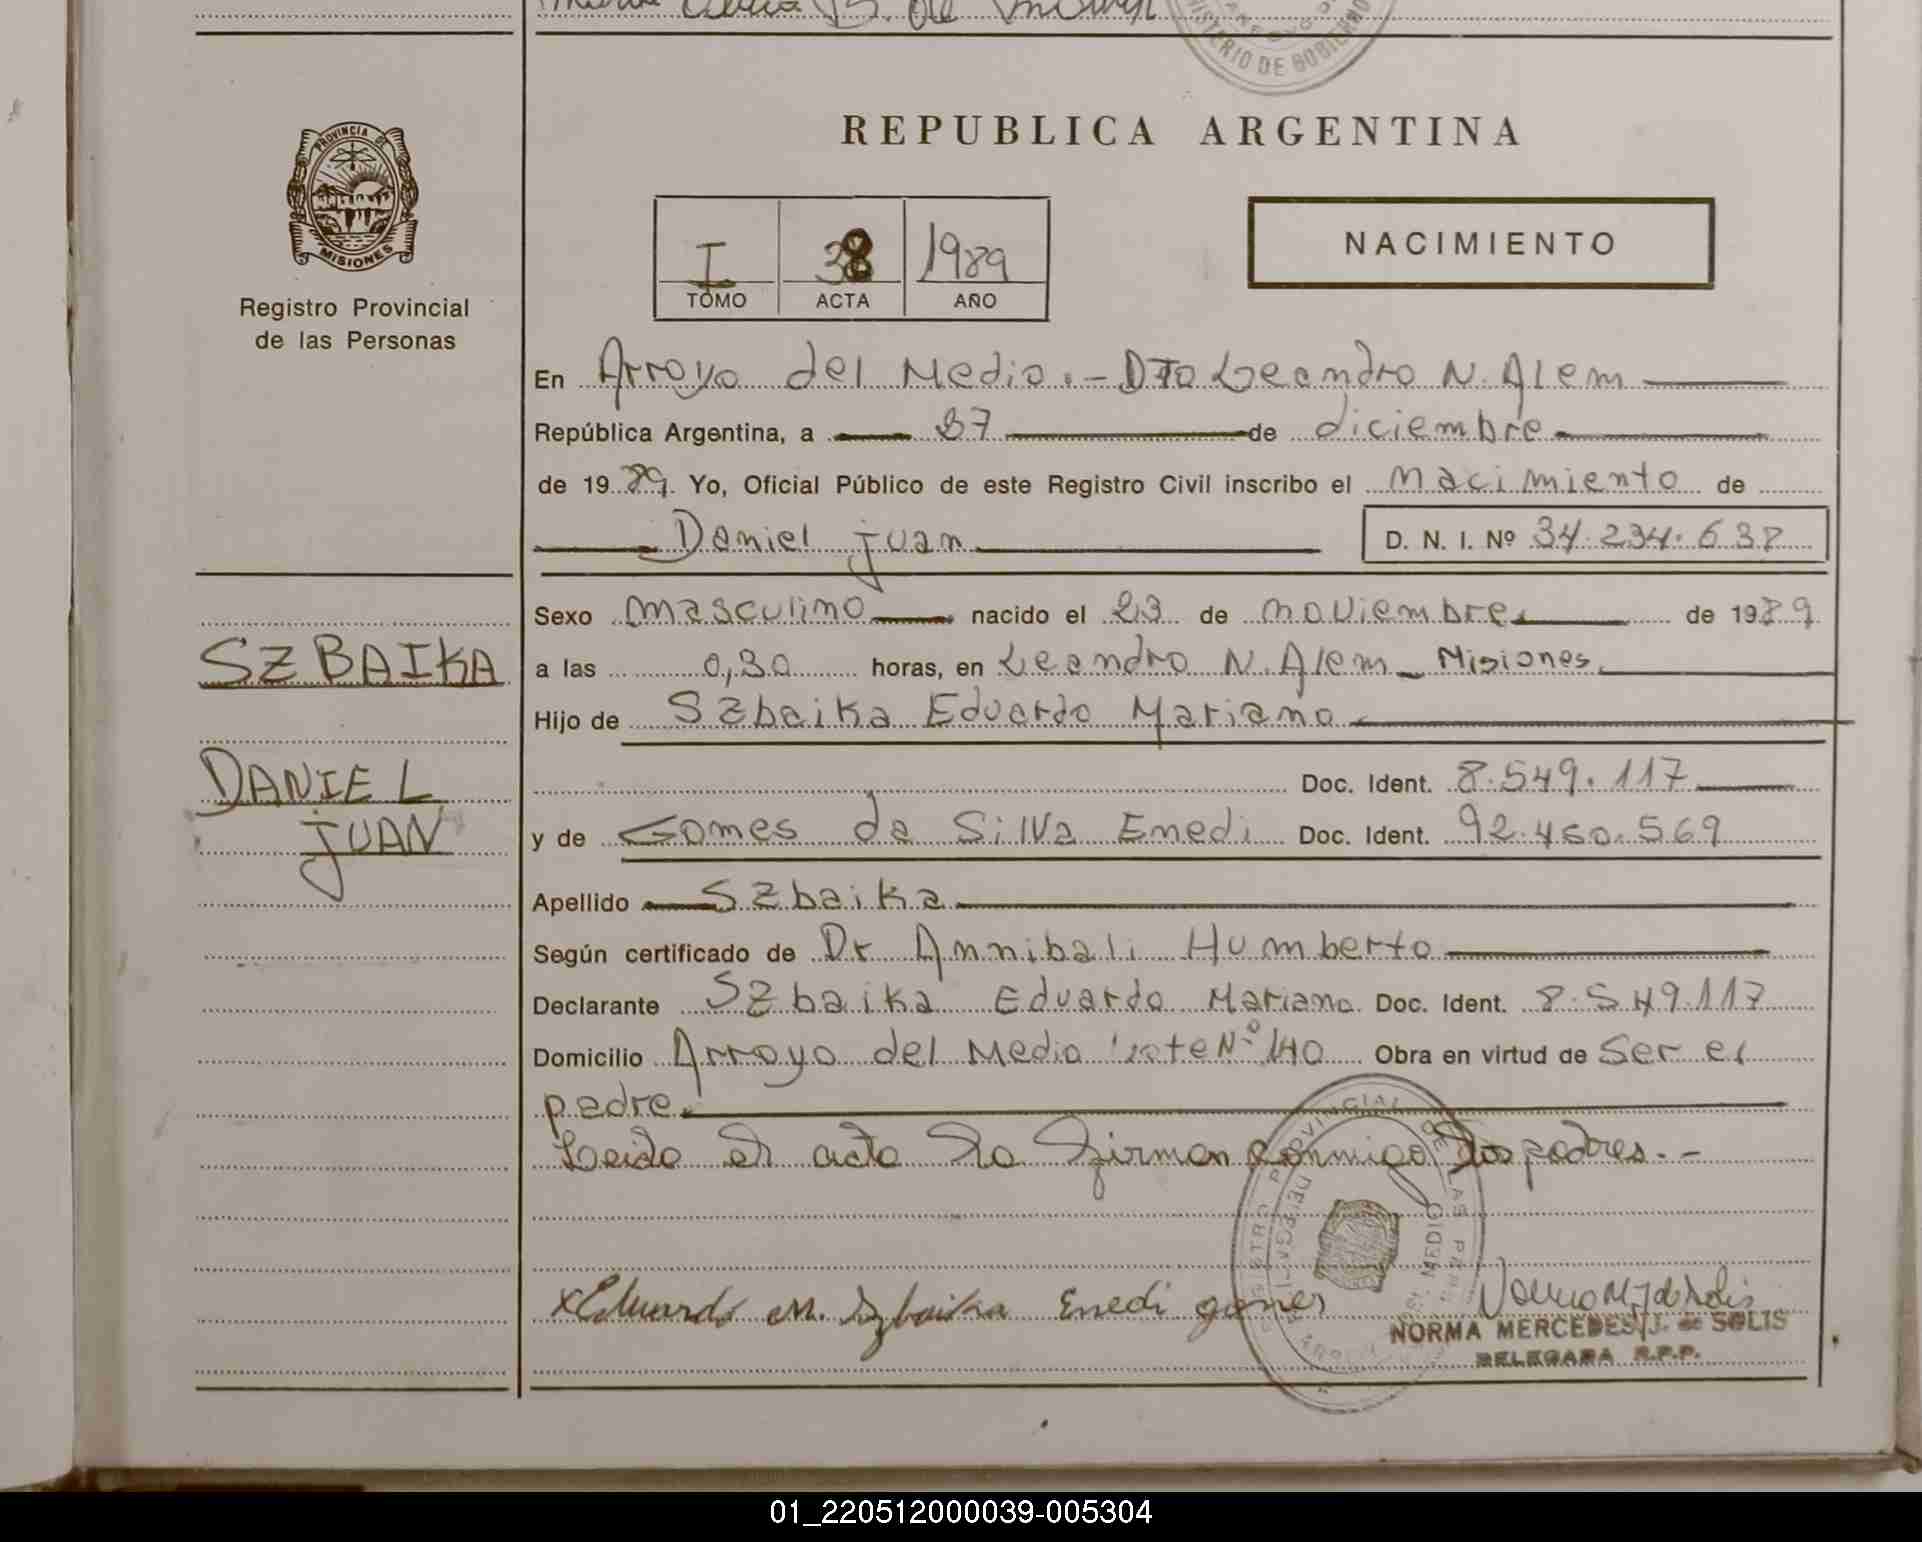 MINISTERIO DE GOBIERNO
PROVINCIA DE
MISIONES
Registro Provincial
de las Personas
REPUBLICA ARGENTINA
I 38 1989
TOMO ACTA AÑO
NACIMIENTO
En Arroyo del Medio.- Dto Leandro N. Alem
República Argentina, a 27 de diciembre
de 1989. Yo, Oficial Público de este Registro Civil inscribo el nacimiento de
Daniel juan D. N. I. Nº 34.234.638
Sexo masculino nacido el 23 de noviembre de 1989
a las 0,30 horas, en Leandro N. Alem - Misiones.
Hijo de Szbaika Eduardo Mariano
Doc. Ident. 8.549.117
y de Gomes da Silva Enedi Doc. Ident. 92.450.569
Apellido Szbaika
Según certificado de Dr Annibali Humberto
Declarante Szbaika Eduardo Mariano. Doc. Ident. 8.549.117
Domicilio Arroyo del Medio lote Nº 140 Obra en virtud de ser el
padre.
Leido el acta la firman conmigo los padres.-
SZBAIKA
DANIEL
jUAN
x Eduardo M. Szbaika Enedi gomes
NORMA MERCEDES J. de SOLIS
DELEGADA R.P.P.
01_220512000039-005304